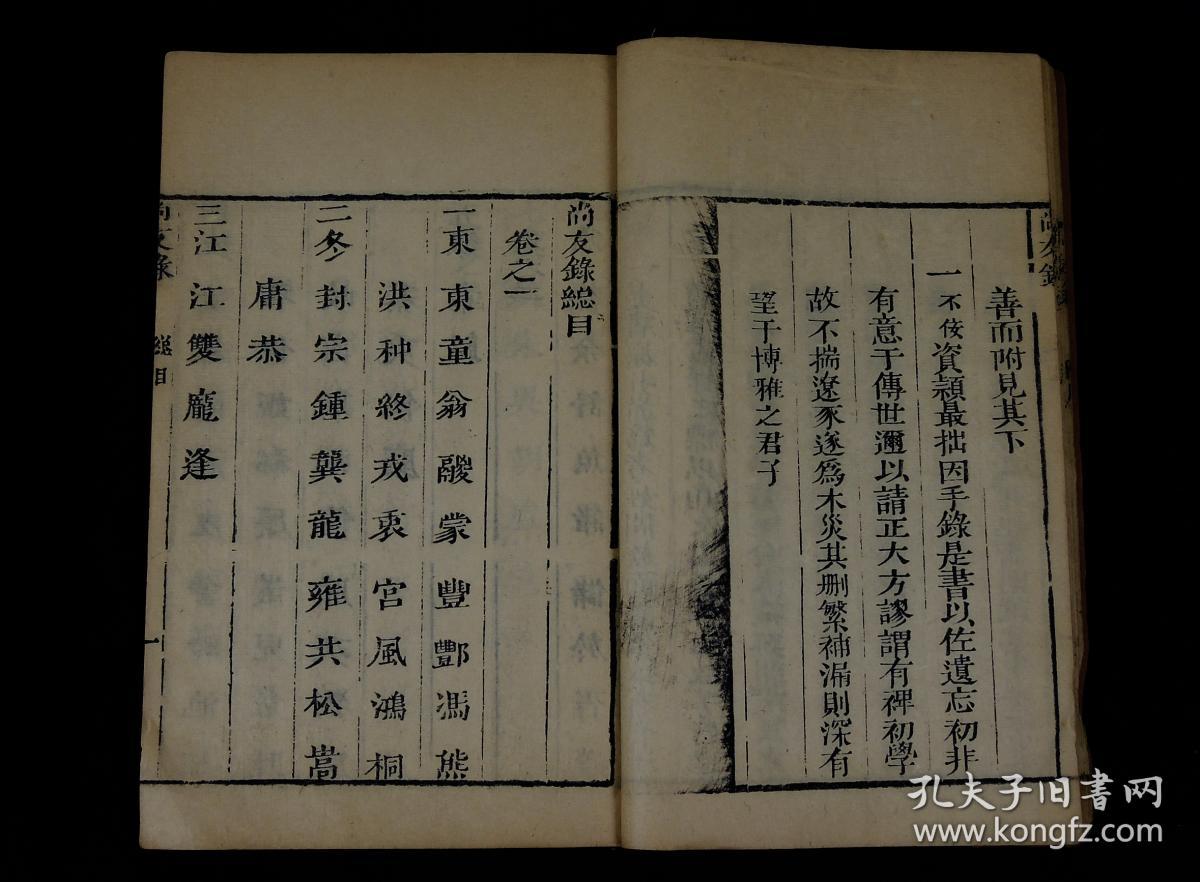 尚友錄
善而附見其下
一不佞資穎最拙因手錄是書以佐遺忘初非
有意于傳世邇以請正大方謬謂有裨初學
故不揣遼豕遂爲木災其刪繁補漏則深有
望于博雅之君子
尚友錄總目
卷之一
一東 東童翁鬷蒙豐酆馮熊
洪种終戎衷宮風鴻桐
二冬 封宗鍾龔龍雍共松嵩
庸恭
三江 江雙龐逢
尚友錄 總目 一
孔夫子旧书网
www.kongfz.com